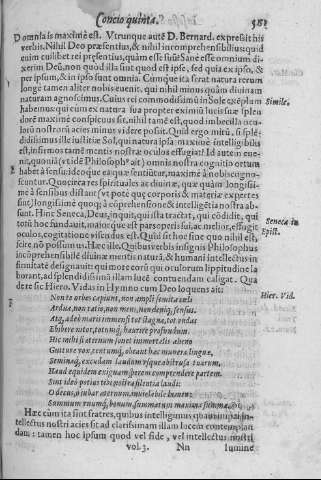 Concio quinta. 581
omnia is maximè est. Vtrunque autē D. Bernard. expressit his
verbis. Nihil Deo præsentius, & nihil incomprehensibilius: quid
enim cuilibet rei præsentius, quàm esse suū? Sanè esse omnium di-
xerim Deū, non quod illa sunt quod est ipse, sed quia ex ipso, &
per ipsum, & in ipso sunt omnia. Cumque ita serat natura rerum
longè tamen aliter nobis euenit, qui nihil minus quàm diuinam
naturam agnoscimus. Cuius rei commodissimū in Sole exéplum Simile.
habemus: qui cùm ex natura sua propter eximiū lucis suæ splen-
dorē maximè conspicuus sit, nihil tamē est, quod imbecilla ocu-
lorū nostrorū acies minus videre possit. Quid ergo mirū, si splē-
didissimus ille iustitiæ Sol, qui natura ipsa maximè intelligibilis
est, infirmos tamē mentis nostræ oculos effugiat? Id autem eue-
nit, quoniā (vt idē Philosophº ait) omnis nostra cognitio ortum
habet à sensu: ideoque ea quæ sentiūtur, maximè à nobis cognos-
scuntur. Quo circa res spirituales ac diuinæ, quæ quàm longissi-
mè à sensibus distant (vt potè quę corporis & materiæ expertes
sunt) longissimè quoq; à cōprehensione & intelligētia nostra ab-
sunt. Hinc Seneca, Deus, inquit, qui ista tractat, qui cōdidit, qui Seneca in
totū hoc fundauit, maiorque est pars operis sui, ac melior, effugit Epist.
oculos, cogitatione visendus est. Quid sit hoc sine quo nihil est,
scire nō possumus. Hæc ille. Quibus verbis insignis Philosophus
incōprehensibilē diuinæ mentis naturā, & humani intellectus in
firmitatē designauit: qui more eorū qui oculorum lippitudine la
borant, ad splendidissimā illam lucē contuendam caligat. Qua
dere sic Hiero. Vidas in Hymno cum Deo loquens ait: Hier. Vid.
Non te orbes capiunt, non ampli semita cæli
Ardua, non ratio, non mens, non deniq, sensus.
Atq, adeò maris immensi tot stagna, tot vndas
Ebibere vitet, totumq, haurire profundum.
Hic mihi si æternum fonet immortalis ahenо
Guttere vox, centumq, obeant hæc munera linguæ,
Seminaq, excudam laudum vsque abstrusa tuarum,
Haud equidem exiguam spreta comprendere partem.
Sint ideò potius tibi posita silentia laudi:
O decus, ò iubar æternum, mutabile lumen:
Summum vnumq, bonum, summarum maxima summa.
Hæc cùm ita sint fratres, quibus intelligimus quàm impar in-
tellectus nostri acies sit ad clarissimam illam lucem contemplan
dam: tamen hoc ipsum quod vel fide, vel intellectus nostri
vol. 3. Nn lumine